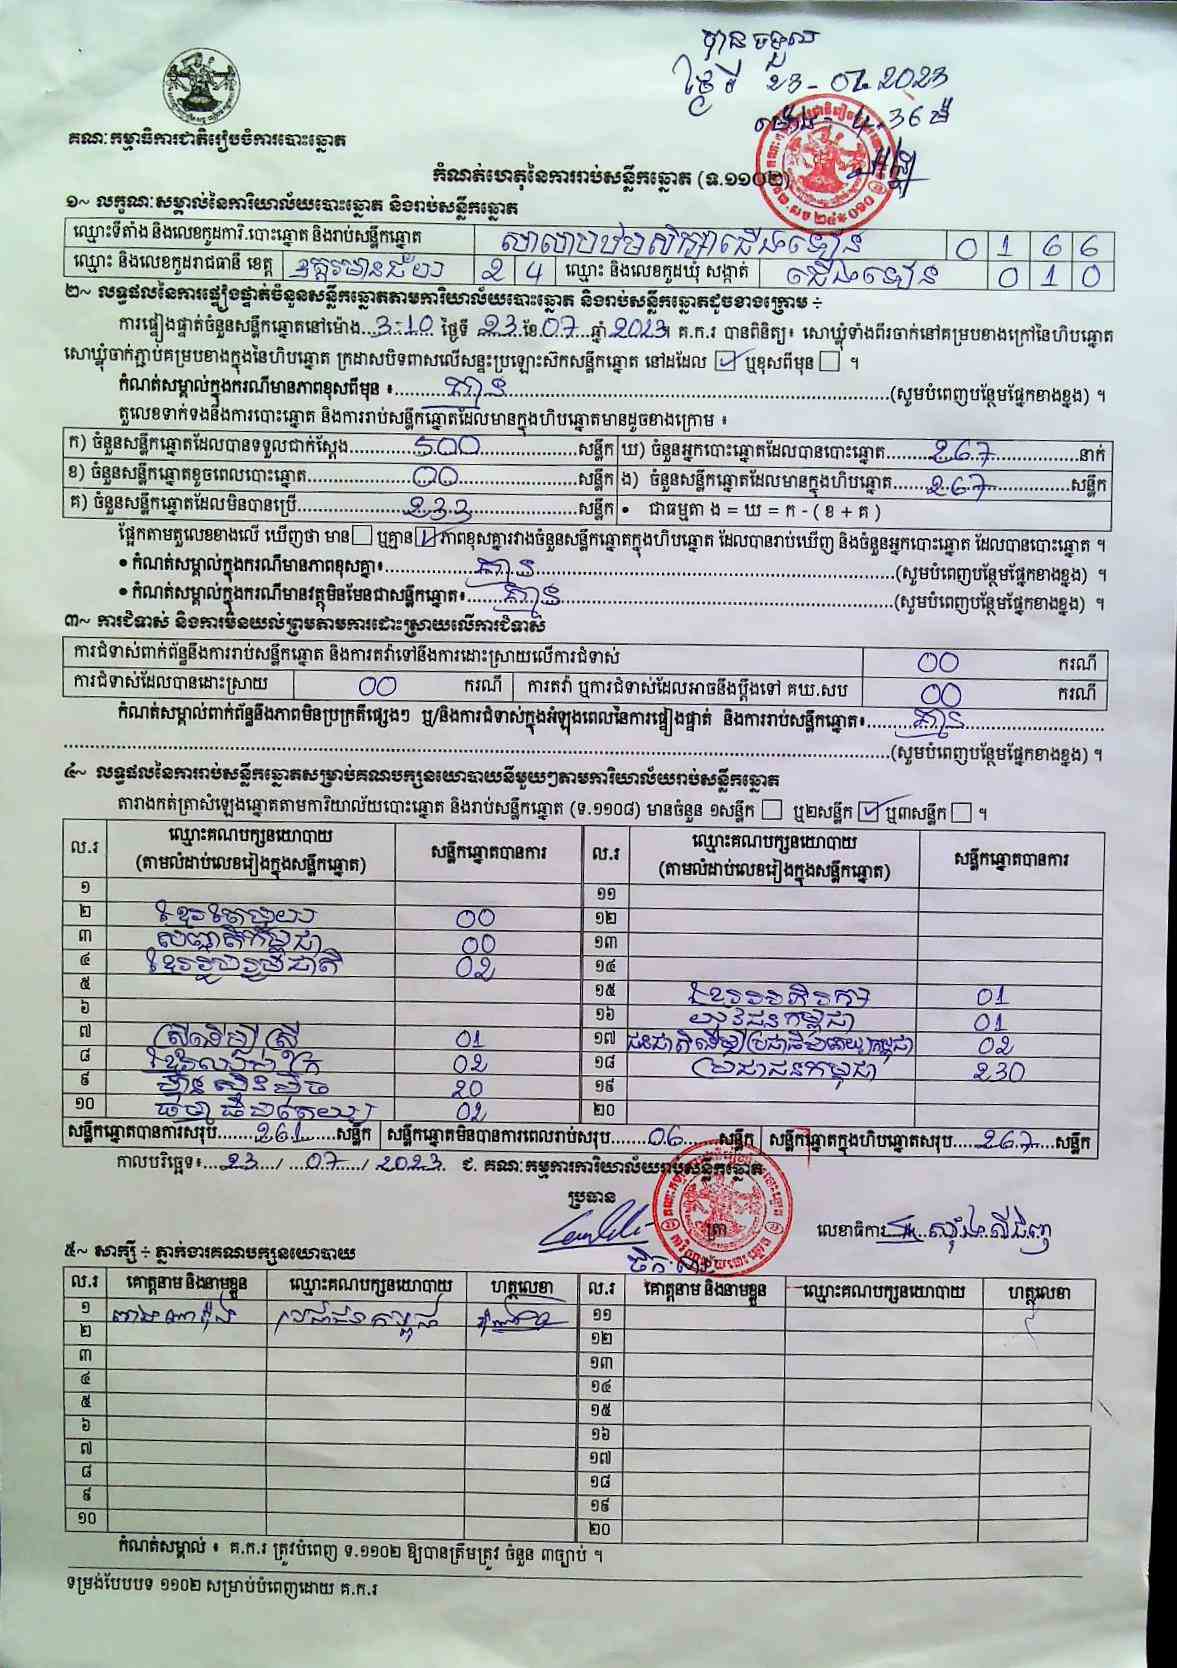 បានទទួល
ថ្ងៃទី 23-07-2023
ម៉ោង 4:36 ន
គណៈកម្មាធិការជាតិរៀបចំការបោះឆ្នោត
កំណត់ហេតុនៃការរាប់សន្លឹកឆ្នោត (ទ.១១០២)
១~ លក្ខណៈសម្គាល់នៃការិយាល័យបោះឆ្នោត និងរាប់សន្លឹកឆ្នោត
ឈ្មោះទីតាំង និងលេខកូដការិ.បោះឆ្នោត និងរាប់សន្លឹកឆ្នោត សាលាបឋមសិក្សាជើងទៀន 0 1 6 6
ឈ្មោះ និងលេខកូដរាជធានី ខេត្ត ឧត្តរមានជ័យ 2 4 ឈ្មោះ និងលេខកូដឃុំ សង្កាត់ ជើងទៀន 0 1 0
២~ លទ្ធផលនៃការផ្ទៀងផ្ទាត់ចំនួនសន្លឹកឆ្នោតតាមការិយាល័យបោះឆ្នោត និងរាប់សន្លឹកឆ្នោតដូចខាងក្រោម ÷
ការផ្ទៀងផ្ទាត់ចំនួនសន្លឹកឆ្នោតនៅម៉ោង...3:10 ថ្ងៃទី 23 ខែ 07 ឆ្នាំ 2023 គ.ក.រ បានពិនិត្យ៖ សោឃ្លុំទាំងពីរចាក់នៅគម្របខាងក្រៅនៃហិបឆ្នោត
សោឃ្លុំចាក់ភ្ជាប់គម្របខាងក្នុងនៃហិបឆ្នោត ក្រដាសបិទពាសលើសន្ទះប្រឡោះស៊កសន្លឹកឆ្នោត នៅដដែល ☑ ឬខុសពីមុន ☐ ។
កំណត់សម្គាល់ក្នុងករណីមានភាពខុសពីមុន ៖ គ្មាន (សូមបំពេញបន្ថែមផ្នែកខាងខ្នង) ។
តួលេខទាក់ទងនឹងការបោះឆ្នោត និងការរាប់សន្លឹកឆ្នោតដែលមានក្នុងហិបឆ្នោតមានដូចខាងក្រោម ៖
ក) ចំនួនសន្លឹកឆ្នោតដែលបានទទួលជាក់ស្តែង 500 សន្លឹក ឃ) ចំនួនអ្នកបោះឆ្នោតដែលបានបោះឆ្នោត 267 នាក់
ខ) ចំនួនសន្លឹកឆ្នោតខូចពេលបោះឆ្នោត 00 សន្លឹក ង) ចំនួនសន្លឹកឆ្នោតដែលមានក្នុងហិបឆ្នោត 267 សន្លឹក
គ) ចំនួនសន្លឹកឆ្នោតដែលមិនបានប្រើ 233 សន្លឹក • ជាធម្មតា ង = ឃ = ក - ( ខ + គ )
ផ្អែកតាមតួលេខខាងលើ ឃើញថា មាន ☐ ឬគ្មាន ☑ ភាពខុសគ្នារវាងចំនួនសន្លឹកឆ្នោតក្នុងហិបឆ្នោត ដែលបានរាប់ឃើញ និងចំនួនអ្នកបោះឆ្នោត ដែលបានបោះឆ្នោត ។
• កំណត់សម្គាល់ក្នុងករណីមានភាពខុសគ្នា៖ គ្មាន (សូមបំពេញបន្ថែមផ្នែកខាងខ្នង) ។
• កំណត់សម្គាល់ក្នុងករណីមានវត្ថុមិនមែនជាសន្លឹកឆ្នោត៖ គ្មាន (សូមបំពេញបន្ថែមផ្នែកខាងខ្នង) ។
៣~ ការជំទាស់ និងការមិនយល់ព្រមតាមការដោះស្រាយលើការជំទាស់
ការជំទាស់ពាក់ព័ន្ធនឹងការរាប់សន្លឹកឆ្នោត និងការតវ៉ាទៅនឹងការដោះស្រាយលើការជំទាស់ 00 ករណី
ការជំទាស់ដែលបានដោះស្រាយ 00 ករណី ការតវ៉ា ឬការជំទាស់ដែលអាចនឹងប្តឹងទៅ គឃ.សប 00 ករណី
កំណត់សម្គាល់ពាក់ព័ន្ធនឹងភាពមិនប្រក្រតីផ្សេងៗ ឬ/និងការជំទាស់ក្នុងអំឡុងពេលនៃការផ្ទៀងផ្ទាត់ និងការរាប់សន្លឹកឆ្នោត៖ គ្មាន
(សូមបំពេញបន្ថែមផ្នែកខាងខ្នង) ។
៤~ លទ្ធផលនៃការរាប់សន្លឹកឆ្នោតសម្រាប់គណបក្សនយោបាយនីមួយៗតាមការិយាល័យរាប់សន្លឹកឆ្នោត
តារាងកត់ត្រាសំឡេងឆ្នោតតាមការិយាល័យបោះឆ្នោត និងរាប់សន្លឹកឆ្នោត (ទ.១១០៨) មានចំនួន ១សន្លឹក ☐ ឬ២សន្លឹក ☑ ឬ៣សន្លឹក ☐ ។
ល.រ ឈ្មោះគណបក្សនយោបាយ (តាមលំដាប់លេខរៀងក្នុងសន្លឹកឆ្នោត) សន្លឹកឆ្នោតបានការ ល.រ ឈ្មោះគណបក្សនយោបាយ (តាមលំដាប់លេខរៀងក្នុងសន្លឹកឆ្នោត) សន្លឹកឆ្នោតបានការ
១ ១១
២ ខ្មែរតែមួយ 00 ១២
៣ សញ្ជាតិកម្ពុជា 00 ១៣
៤ ខ្មែររួបរួមជាតិ 02 ១៤
៥ ១៥ ខ្មែរអភិរក្ស 01
៦ ១៦ យុវជនកម្ពុជា 01
៧ ស្ត្រីដើម្បីស្ត្រី 01 ១៧ ជនជាតិដើម្បីប្រជាធិបតេយ្យកម្ពុជា 02
៨ ខ្មែរឈប់ក្រ 02 ១៨ ប្រជាជនកម្ពុជា 230
៩ ហ៊្វុនស៊ិនប៉ិច 20 ១៩
១០ ធម្មាធិបតេយ្យ 02 ២០
សន្លឹកឆ្នោតបានការសរុប 261 សន្លឹក សន្លឹកឆ្នោតមិនបានការពេលរាប់សរុប 06 សន្លឹក សន្លឹកឆ្នោតក្នុងហិបឆ្នោតសរុប 267 សន្លឹក
កាលបរិច្ឆេទ៖ 23 / 07 / 2023 ជ. គណៈកម្មការការិយាល័យរាប់សន្លឹកឆ្នោត
ប្រធាន
ត្រា លេខាធិការ
៥~ សាក្សី ÷ ភ្នាក់ងារគណបក្សនយោបាយ
ល.រ គោត្តនាម និងនាមខ្លួន ឈ្មោះគណបក្សនយោបាយ ហត្ថលេខា ល.រ គោត្តនាម និងនាមខ្លួន ឈ្មោះគណបក្សនយោបាយ ហត្ថលេខា
១ ប្រជាជនកម្ពុជា ១១
២ ១២
៣ ១៣
៤ ១៤
៥ ១៥
៦ ១៦
៧ ១៧
៨ ១៨
៩ ១៩
១០ ២០
កំណត់សម្គាល់ ៖ គ.ក.រ ត្រូវបំពេញ ទ.១១០២ ឱ្យបានត្រឹមត្រូវ ចំនួន ៣ច្បាប់ ។
ទម្រង់បែបបទ ១១០២ សម្រាប់បំពេញដោយ គ.ក.រ